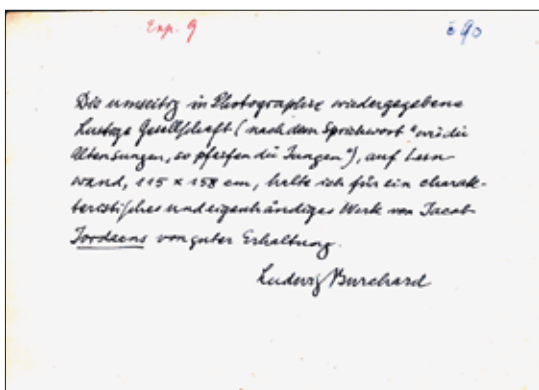 Exp. 9
č 90
Die umseitig in Photographie wiedergegebene
Lustige Gesellschaft (nach dem Sprichwort "wie die
Alten sungen, so pfeifen die Jungen"), auf Lein
wand, 115 x 158 cm, halte ich für ein charak-
teristisches und eigenhändiges Werk von Jacob
Jordaens von guter Erhaltung.
Ludwig Burchard